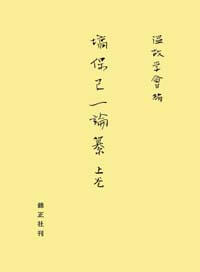 温故学會編
塙保己一論纂 上巻
錦正社刊